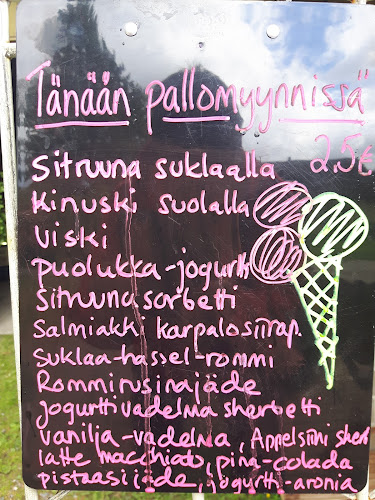 Tänään pallomyynnissä
2,5€
Sitruuna suklaalla
Kinuski suolalla
Viski
puolukka-jogurtti
Sitruunasorbetti
Salmiakki karpalosiirap.
Suklaa-hassel-rommi
Rommirusinajäde
jogurttivadelma sherbetti
vanilja-vadelma, Appelsiini sherb
latte macchiato, pina-colada
pistaasijäde, jogurtti-aronia